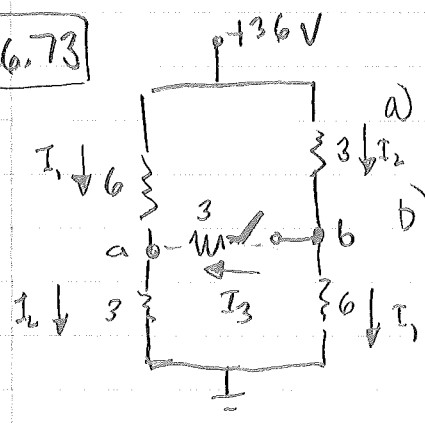 6.73
+36V
a)
I₁ 6 3 I₂
b)
3
a b
I₂ 3 I₃ 6 I₁